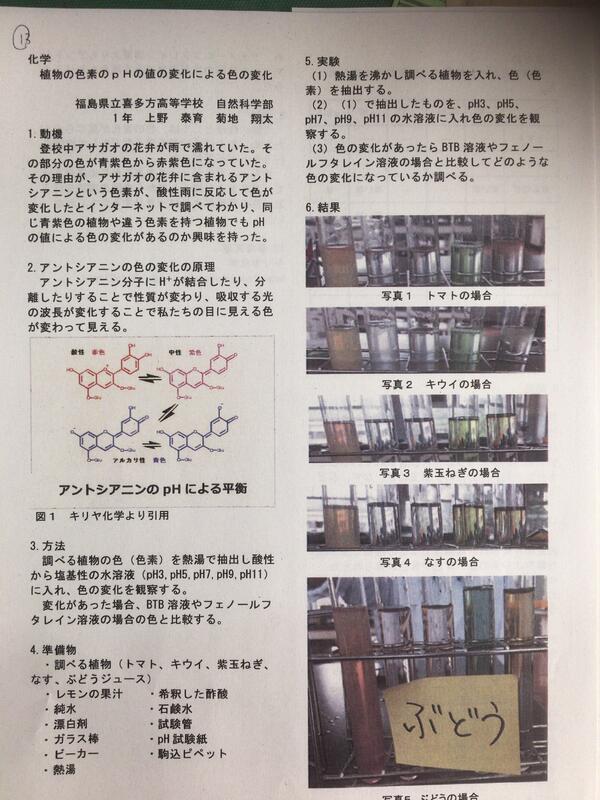 13
化学
植物の色素のpHの値の変化による色の変化
福島県立喜多方高等学校 自然科学部
1年 上野 泰育 菊地 翔太
1. 動機
登校中アサガオの花弁が雨で濡れていた。そ
の部分の色が青紫色から赤紫色になっていた。
その理由が、アサガオの花弁に含まれるアント
シアニンという色素が、酸性雨に反応して色が
変化したとインターネットで調べてわかり、同
じ青紫色の植物や違う色素を持つ植物でもpH
の値による色の変化があるのか興味を持った。
2. アントシアニンの色の変化の原理
アントシアニン分子にH⁺が結合したり、分
離したりすることで性質が変わり、吸収する光
の波長が変化することで私たちの目に見える色
が変わって見える。
酸性 赤色 中性 紫色
アルカリ性 青色
アントシアニンのpHによる平衡
図1 キリヤ化学より引用
3. 方法
調べる植物の色（色素）を熱湯で抽出し酸性
から塩基性の水溶液（pH3,pH5,pH7,pH9,pH11）
に入れ、色の変化を観察する。
変化があった場合、BTB溶液やフェノールフ
タレイン溶液の場合の色と比較する。
4. 準備物
・調べる植物（トマト、キウイ、紫玉ねぎ、
なす、ぶどうジュース）
・レモンの果汁 ・希釈した酢酸
・純水 ・石鹸水
・漂白剤 ・試験管
・ガラス棒 ・pH試験紙
・ビーカー ・駒込ピペット
・熱湯
5. 実験
（1）熱湯を沸かし調べる植物を入れ、色（色
素）を抽出する。
（2）（1）で抽出したものを、pH3、pH5、
pH7、pH9、pH11の水溶液に入れ色の変化を観
察する。
（3）色の変化があったらBTB溶液やフェノー
ルフタレイン溶液の場合と比較してどのような
色の変化になっているか調べる。
6. 結果
写真1 トマトの場合
写真2 キウイの場合
写真3 紫玉ねぎの場合
写真4 なすの場合
ぶどう
写真5 ぶどうの場合